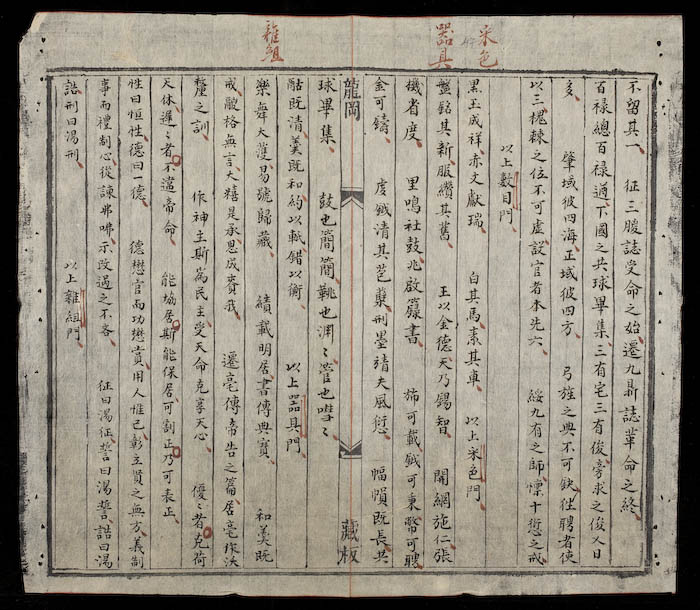 采色
器具
雜組
不留其一　征三朡誌受命之始遷九鼎誌革命之終
百禄總百禄遒下國之共球畢集三有宅三有俊旁求之俊乂日
多　肇域彼四海正域彼四方　弓旌之典不可缺往聘者使
以三槐棘之位不可虛設官者本先六　綏九有之師慄十愆之戒
以上數目門
黑玉成祥赤文獻瑞　白其馬素其車　以上采色門
盤銘其新服纘其舊　王以金德天乃錫智　開網施仁張
機省度　里鳴社鼓兆啟籙書　旆可載鉞可秉幣可聘
金可鑄　虔鉞清其苞蘖刑墨靖夫風愆　幅幀既長共
龍岡　藏板
球畢集　鼓也簡簡鞉也淵〻管也嘒〻
酤既清羹既和約以軧錯以衡　以上器具門
樂舞大濩易號歸藏　績載明居書傳典寶　和羹既
戒鬷格無言大糦是承思成賚我　遷亳傳帝告之篇居亳作沃
釐之訓　作神主斯為民主受天命克享天心　優〻者克荷
天休遲〻者不違帝命　能協居斯能保居可割正乃可表正
性曰恒性德曰一德　德懋官而功懋賞用人惟己彰立賢之無方義制
事而禮制心從諫弗咈示改過之不吝　征曰湯征誓曰湯誓誥曰湯
誥刑曰湯刑　以上雜組門